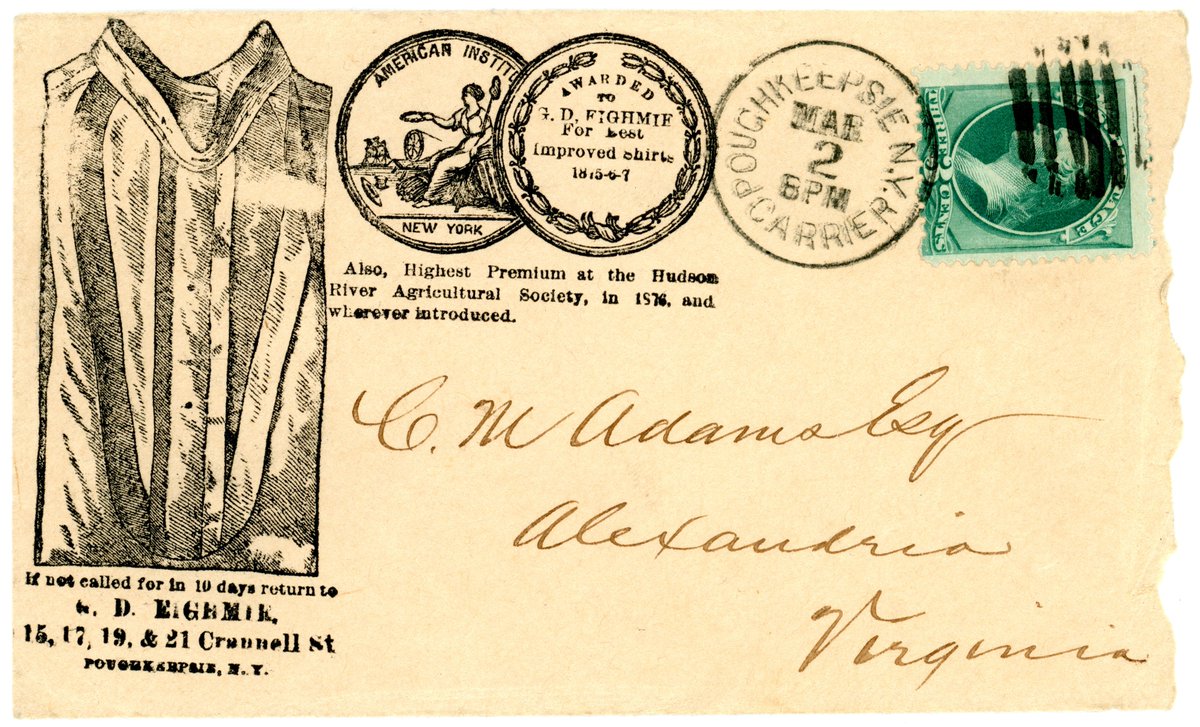 AMERICAN INSTITU
NEW YORK
AWARDED
TO
G. D. EIGHMIE
For Best
Improved Shirts
1875-6-7
Also, Highest Premium at the Hudson
River Agricultural Society, in 1876, and
wherever introduced.
POUGHKEEPSIE N.Y.
MAR
2
6PM
CARRIER.
CENTS
C. M Adams Esq
Alexandria
Virginia
If not called for in 10 days return to
G. D. EIGHMIE,
15, 17, 19, & 21 Crannell St
POUGHKEEPSIE, N. Y.